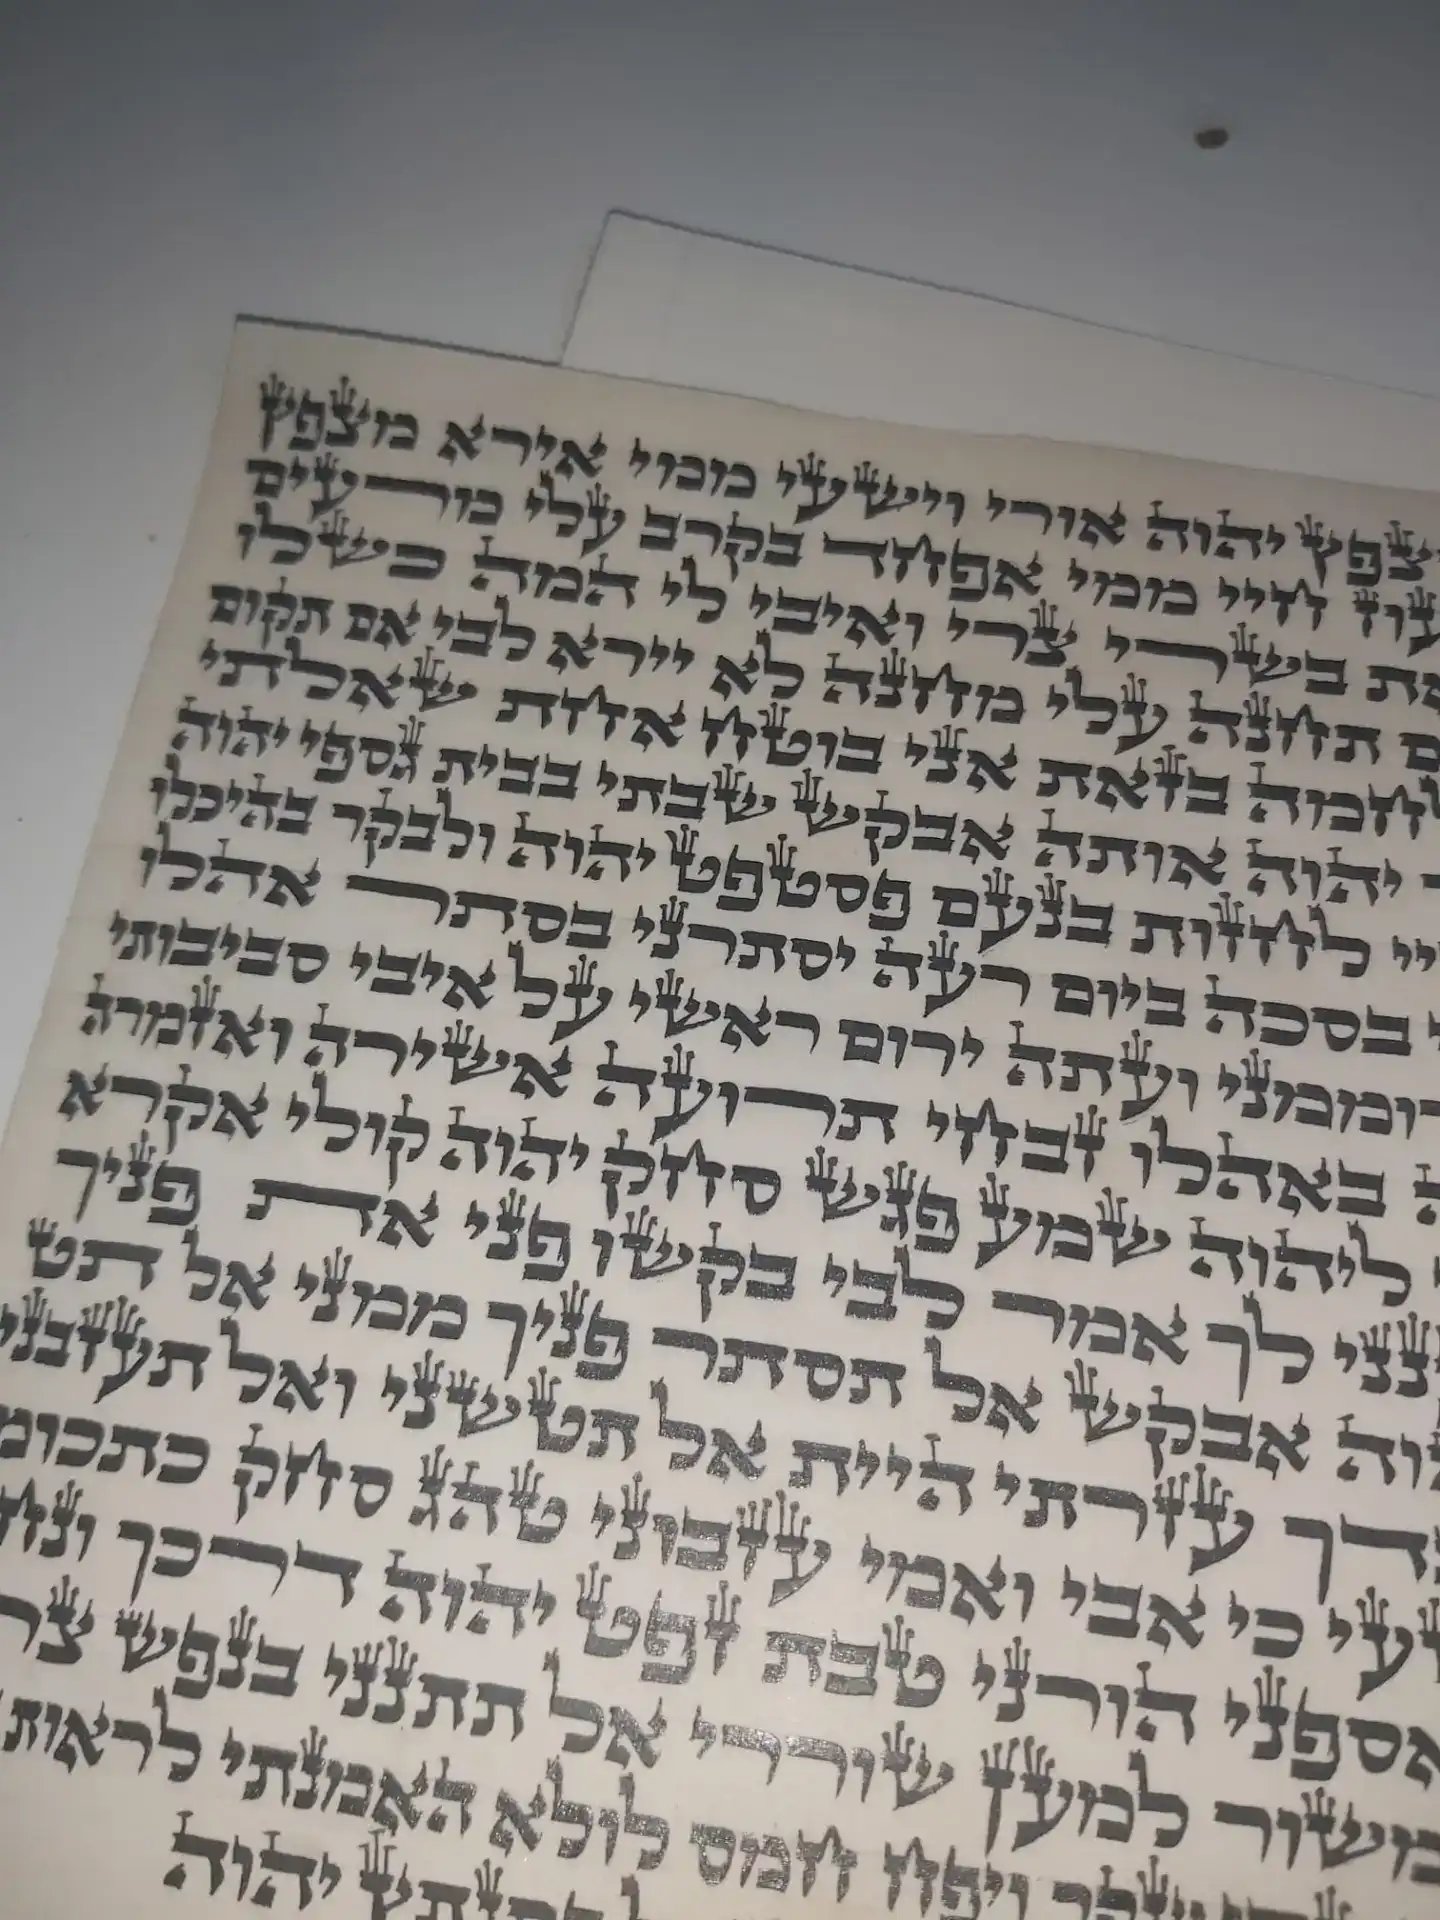 צפץ יהוה אורי וישעי ממי אירא מצפץ
עוז חיי ממי אפחד בקרב עלי מרעים
את בשרי צרי ואיבי לי המה כשלו
ם תחנה עלי מחנה לא יירא לבי אם תקום
לחמה בזאת אני בוטח אחת שאלתי
יהוה אותה אבקש שבתי בבית גספי יהוה
יי לחזות בנעם פסטפט יהוה ולבקר בהיכלו
בסכה ביום רעה יסתרני בסתר אהלו
רוממני ועתה ירום ראשי על איבי סביבותי
ה באהלו זבחי תרועה אשירה ואזמרה
ליהוה שמע פגש סחק יהוה קולי אקרא
נני לך אמר לבי בקשו פני את פניך
וה אבקש אל תסתר פניך ממני אל תט
עזרתי היית אל תטשני ואל תעזבני
שעי כי אבי ואמי עזבוני טהג סחק כתכומ
אספני הורני טבת זפט יהוה דרכך ונח
מישור למען שוררי אל תתנני בנפש צר
שקר ויפח חמס לולא האמנתי לראות
יהוה